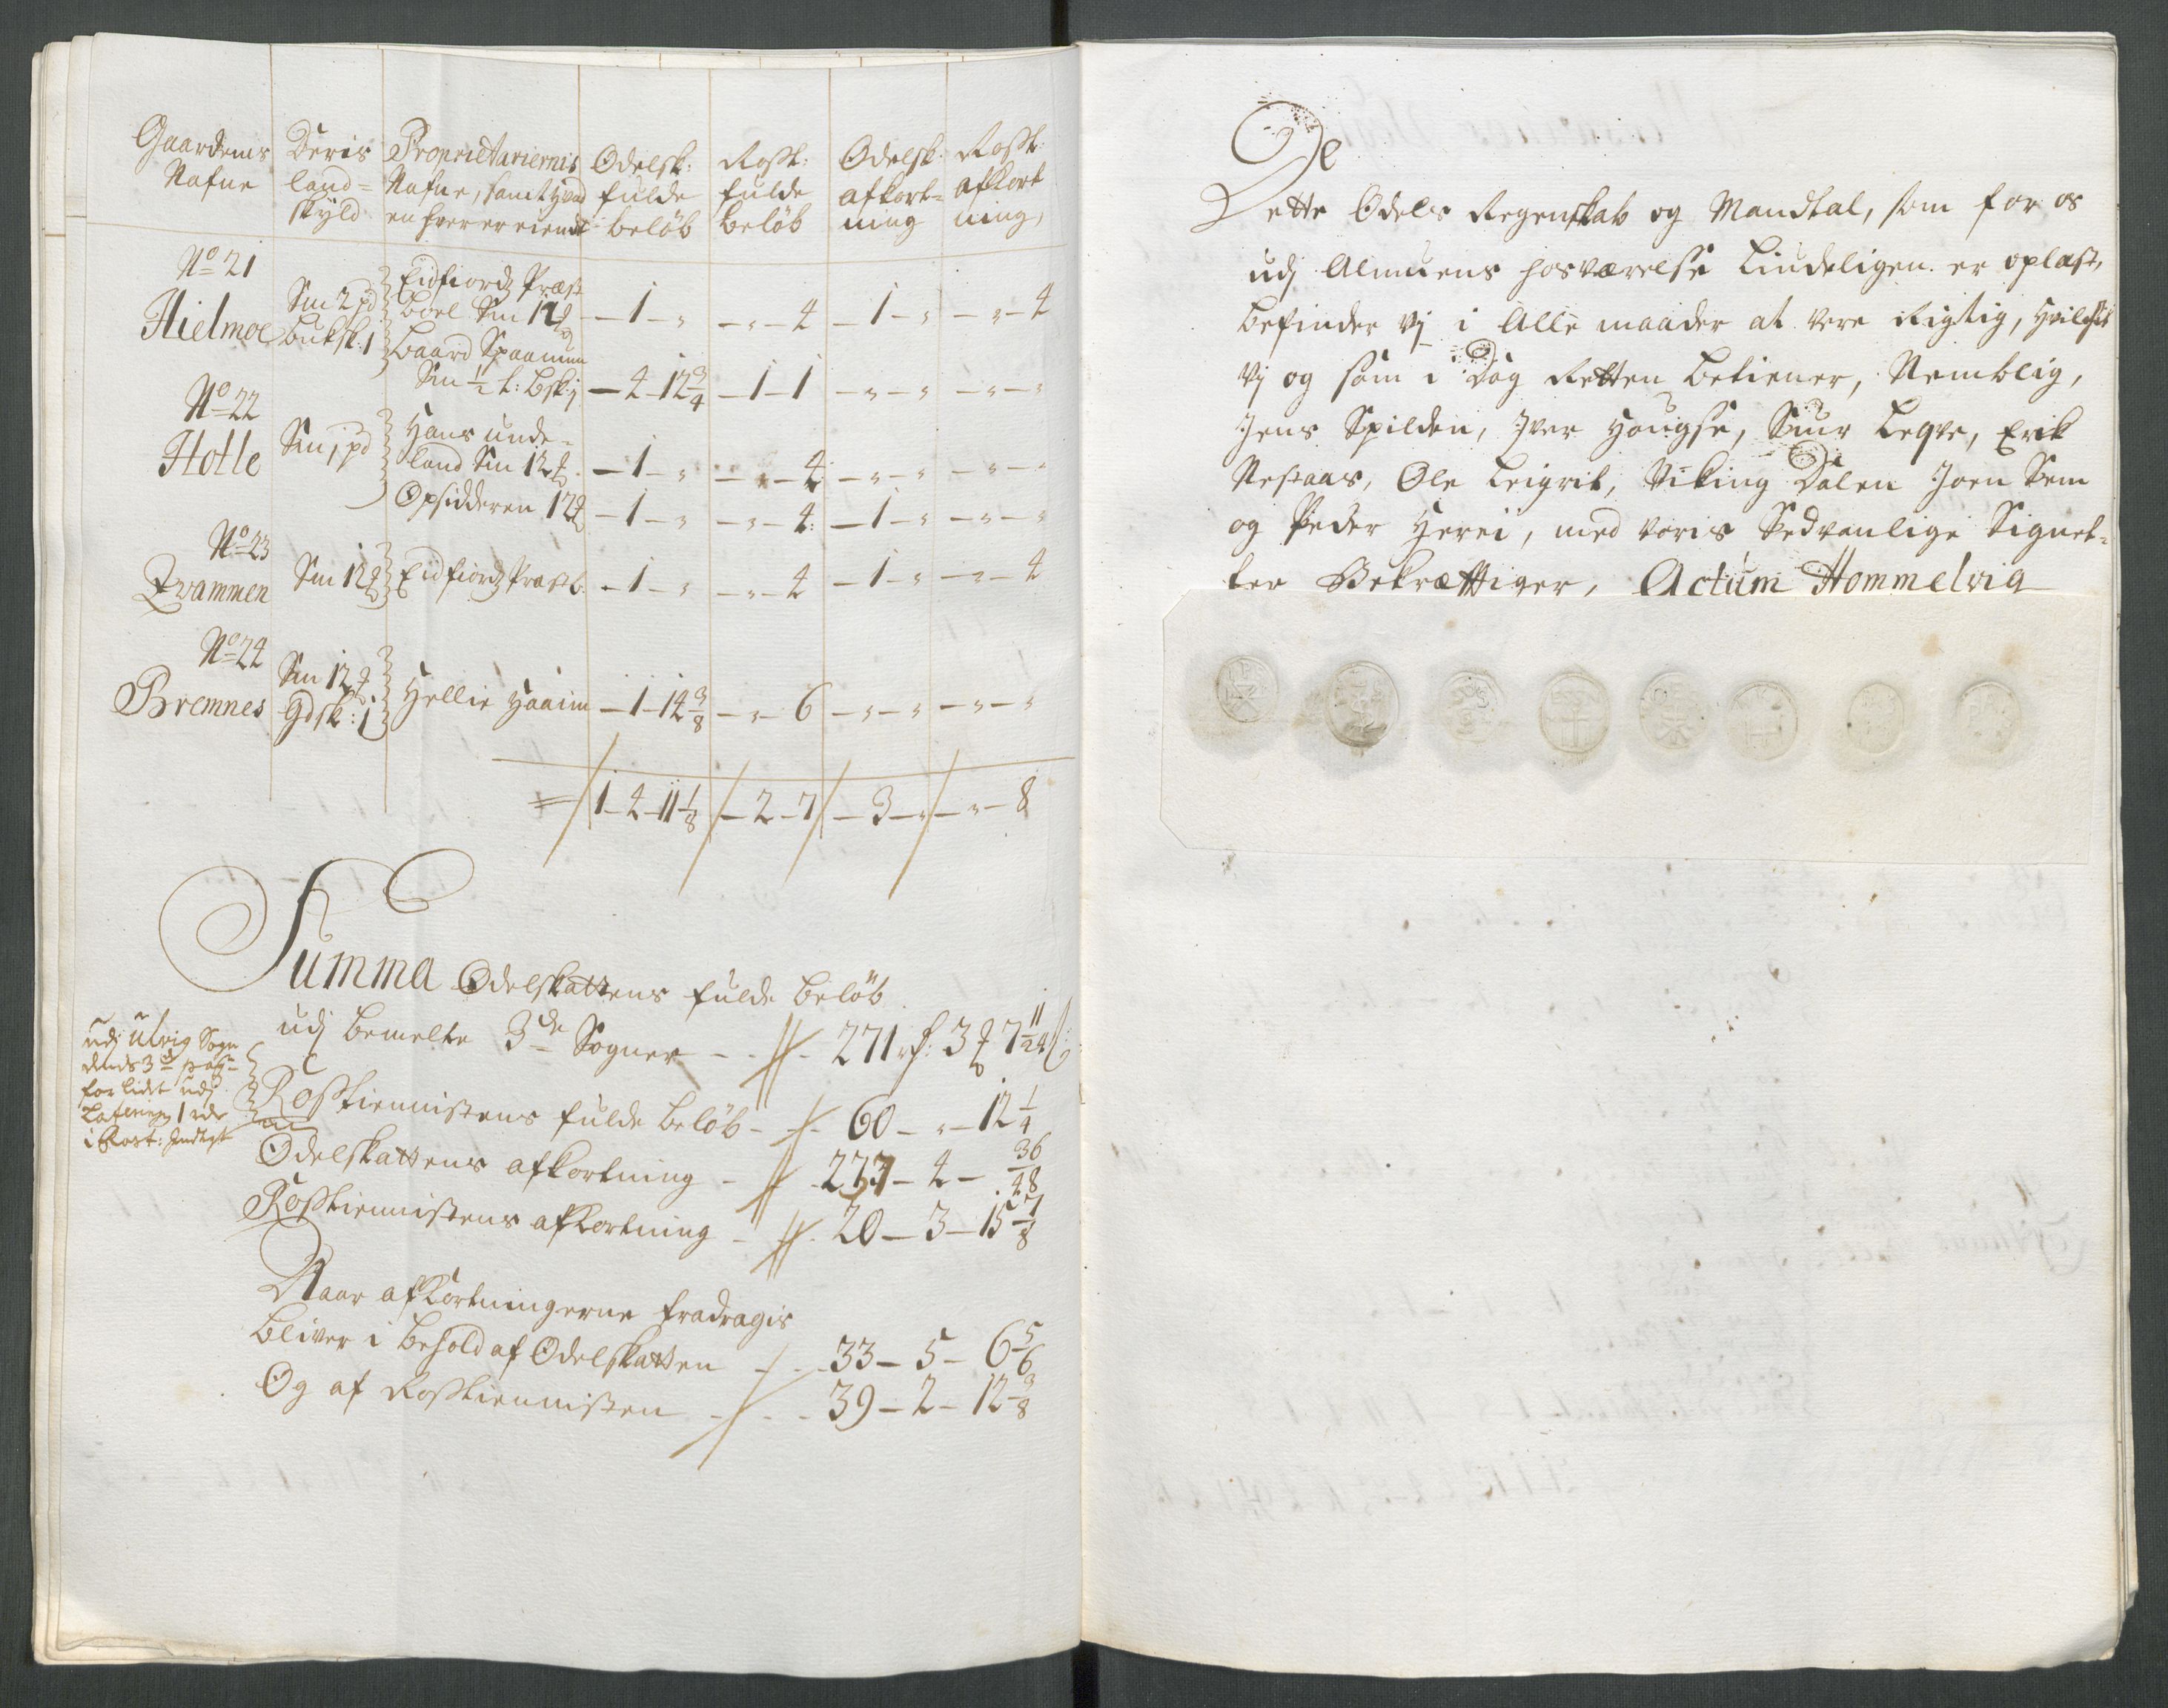 Gaardens Nafne
Deris land= skyld
Proprietariernis Nafne, samt hvad en hver er eiende
Odelsk: fulde beløb
Rosst: fulde beløb
Odelsk: afkort= ning
Rosst: afkort ning,
No 21
Hielmoe
Sm 2 pd
buksk: 1
Eidfiord Præst
boel Sm 12 — 1 — " — " — 4 — 1 — " — " — 4
baard Spaanum
Sm ½ l: bsk: j — 4 — 12 3/4 — 1 — 1 — " — " — " — "
No 22
Hotle
Sm j pd
Hans unde=
land Sm 12 — 1 — " — " — 4 — " — " — " — "
Opsidderen 12 — 1 — " — " — 4: — 1 — " — " — "
No 23
Qvammen
Sm 12
Eidfiord Præstb: — 1 — " — " — 4 — 1 — " — " — 4
No 24
Bremnes
Sm 12
Gdsk: j
Hellie Haaim — 1 — 14 3/8 — " — 6 — " — " — " — "
1 — 4 — 11 1/8 — 2 — 7 — 3 — " — " — 8
Summa Odelskattens fulde beløb
udj bemelte 3de Sogner — 271 r 3 7 11/24
udj Ulvig Sogn
dends 3de pag:
for lidet udj
1 rdr
i Rost: Indtegt
Rosstiennistens fulde beløb — 60 — " — 12 1/4
Odelskattens afkortning — 237 — 4 — 36/48
Rosstiennistens afkortning — 20 — 3 — 15 7/8
Naar afkortningerne fradragis
bliver i behold af Odelskatten — 33 — 5 — 6 5/6
Og af Rosstiennisten — 39 — 2 — 12 3/8
De
Dette Odels Regenskab og Mandtal, som for os
udj Almuens hosværelse liudeligen er oplæst,
befinder vj i Alle maader at være Rigtig, hvilchet
vj og som i Dag Retten betiener, Nemblig,
Jens Spilden, Iver Hougse, Siur Leqve, Erik
Nestaas, Ole Leigrit, Viking Dalen Joen Sem
og Peder Herei, med voris Sedvanlige Signet=
ter Bekræfftiger, Actum Hommelvig